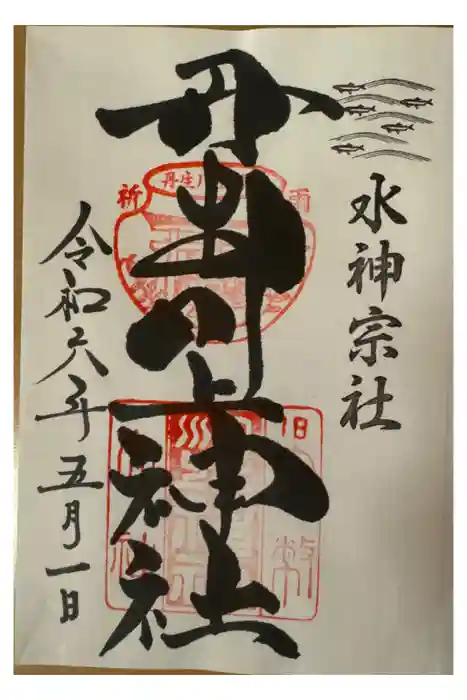 水神宗社
丹生川上神社
令和六年五月一日
祈雨